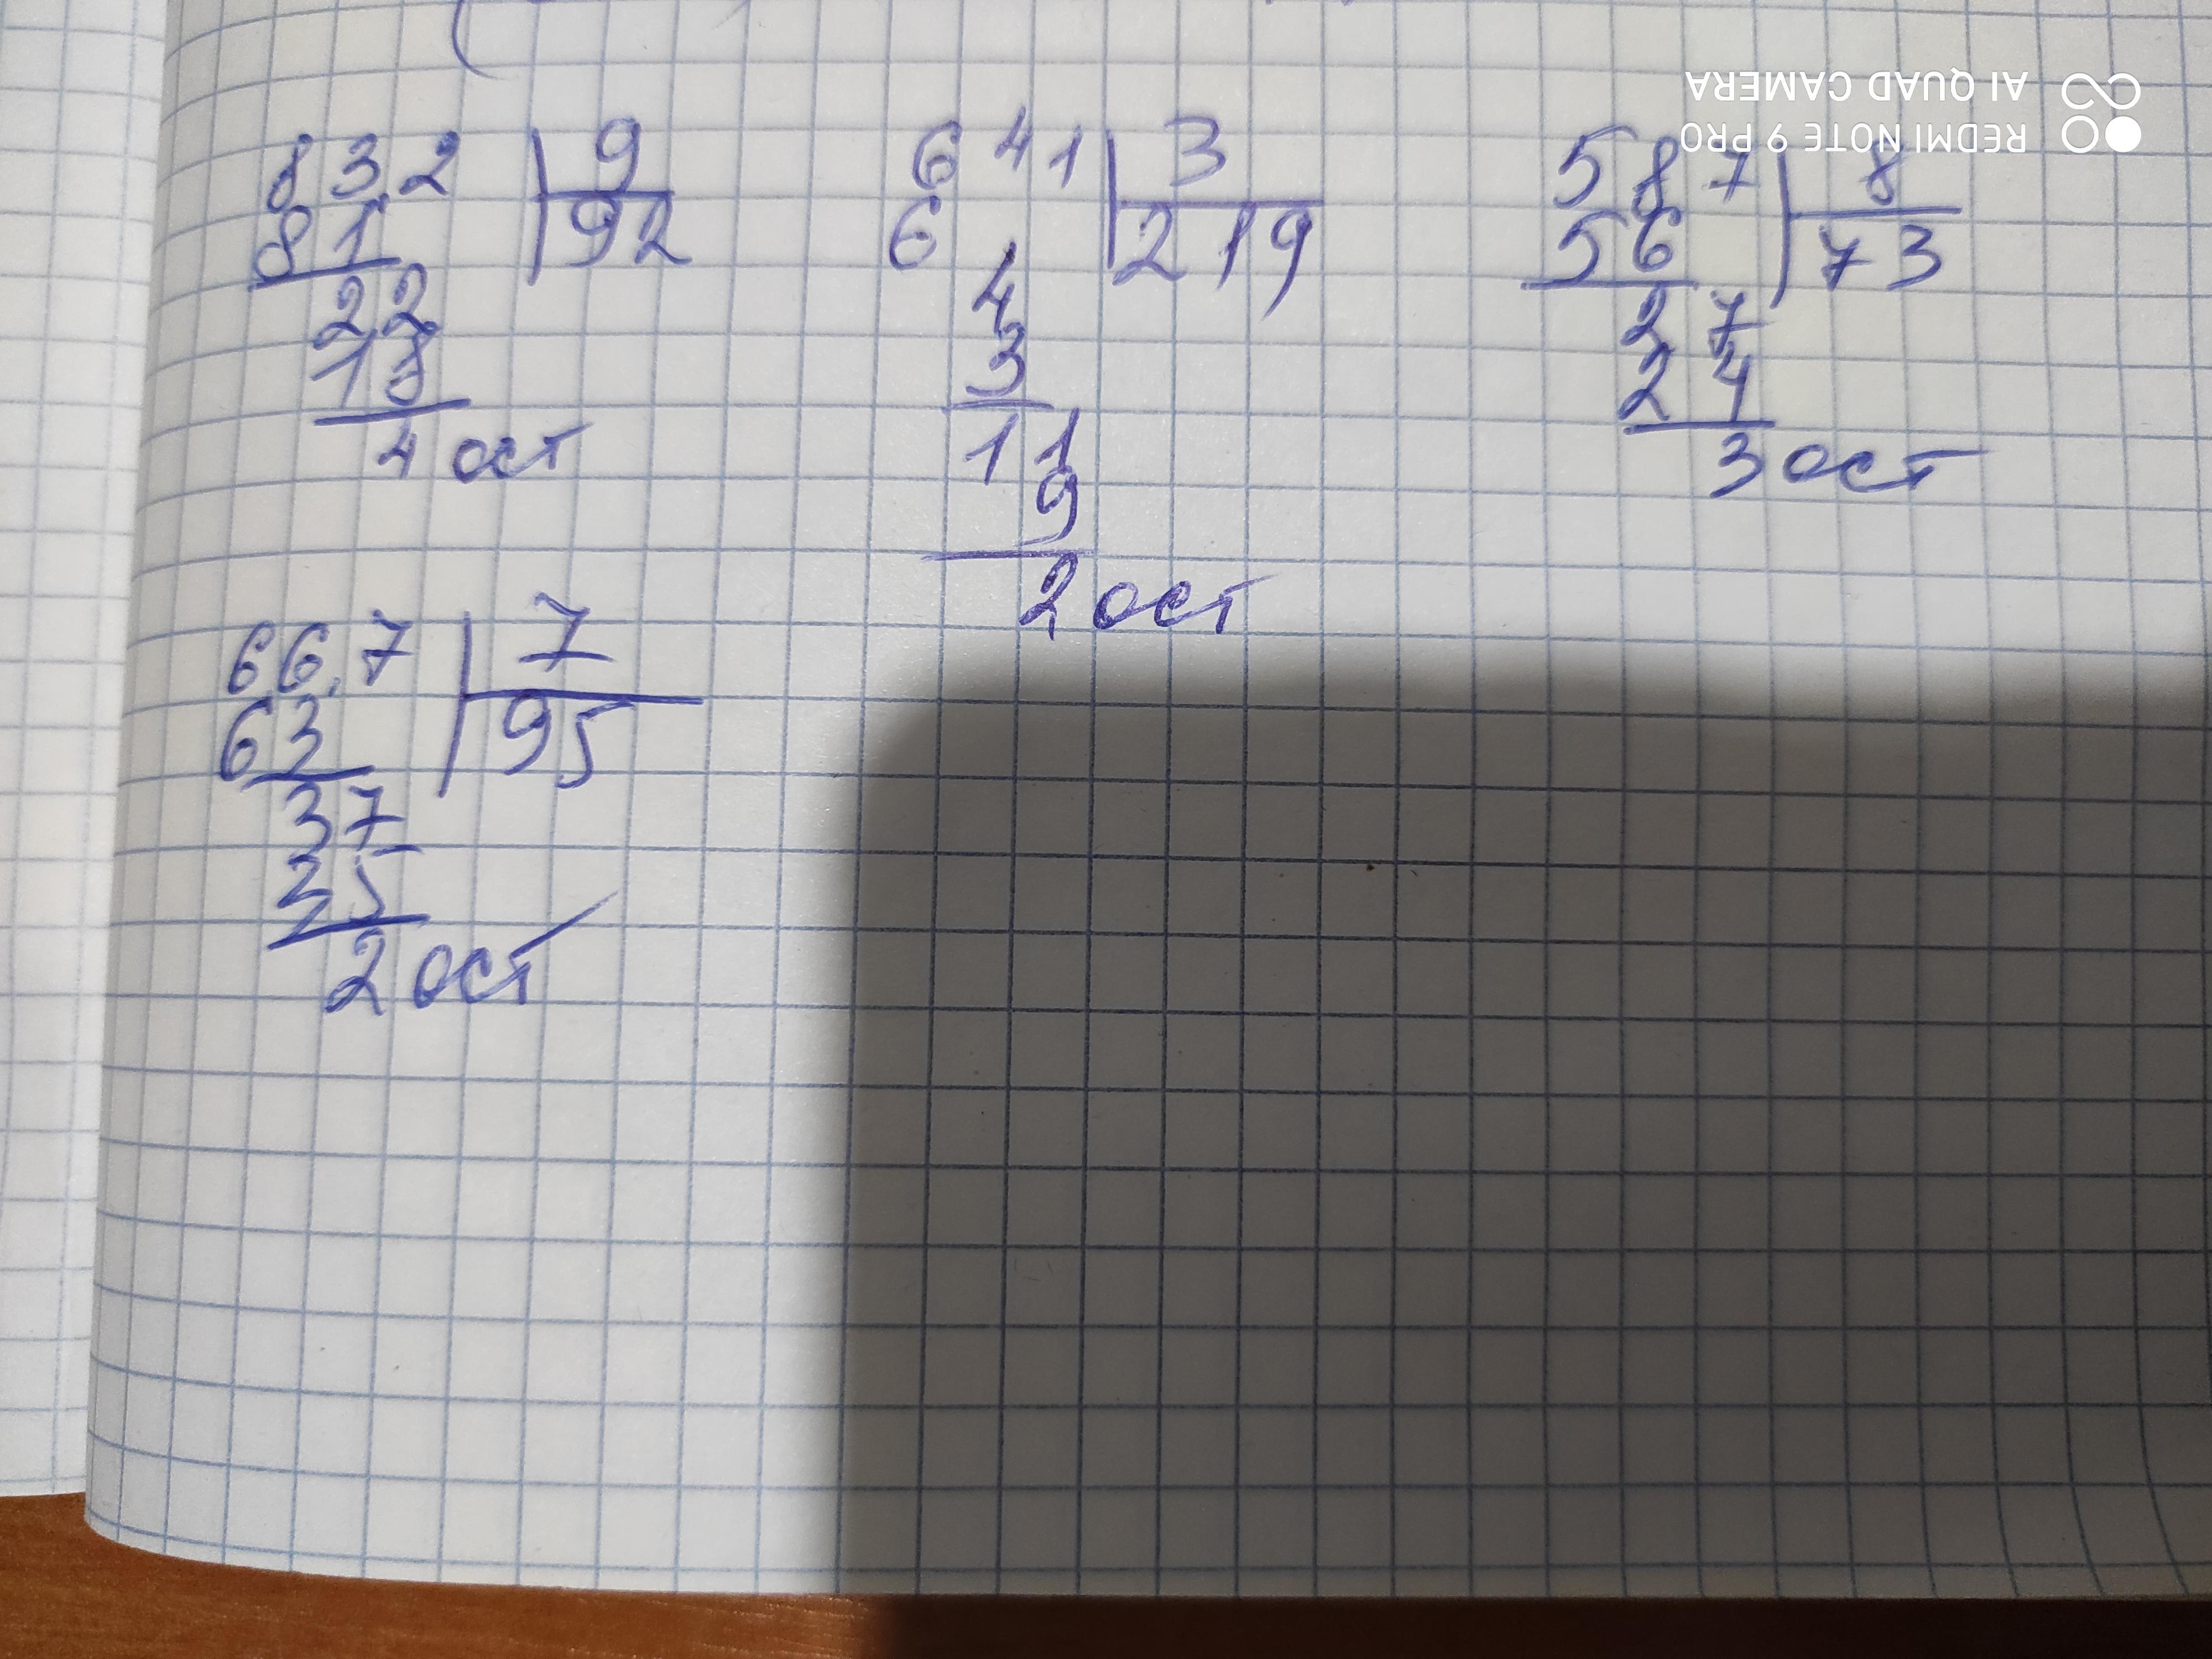 832 9
81 92
22
18
4 ост
641 3
6 219
4
3
11
9
2 ост
587 8
56 73
27
24
3 ост
66.7 7
63 95
37
35
2 ост
REDMI NOTE 9 PRO
AI QUAD CAMERA